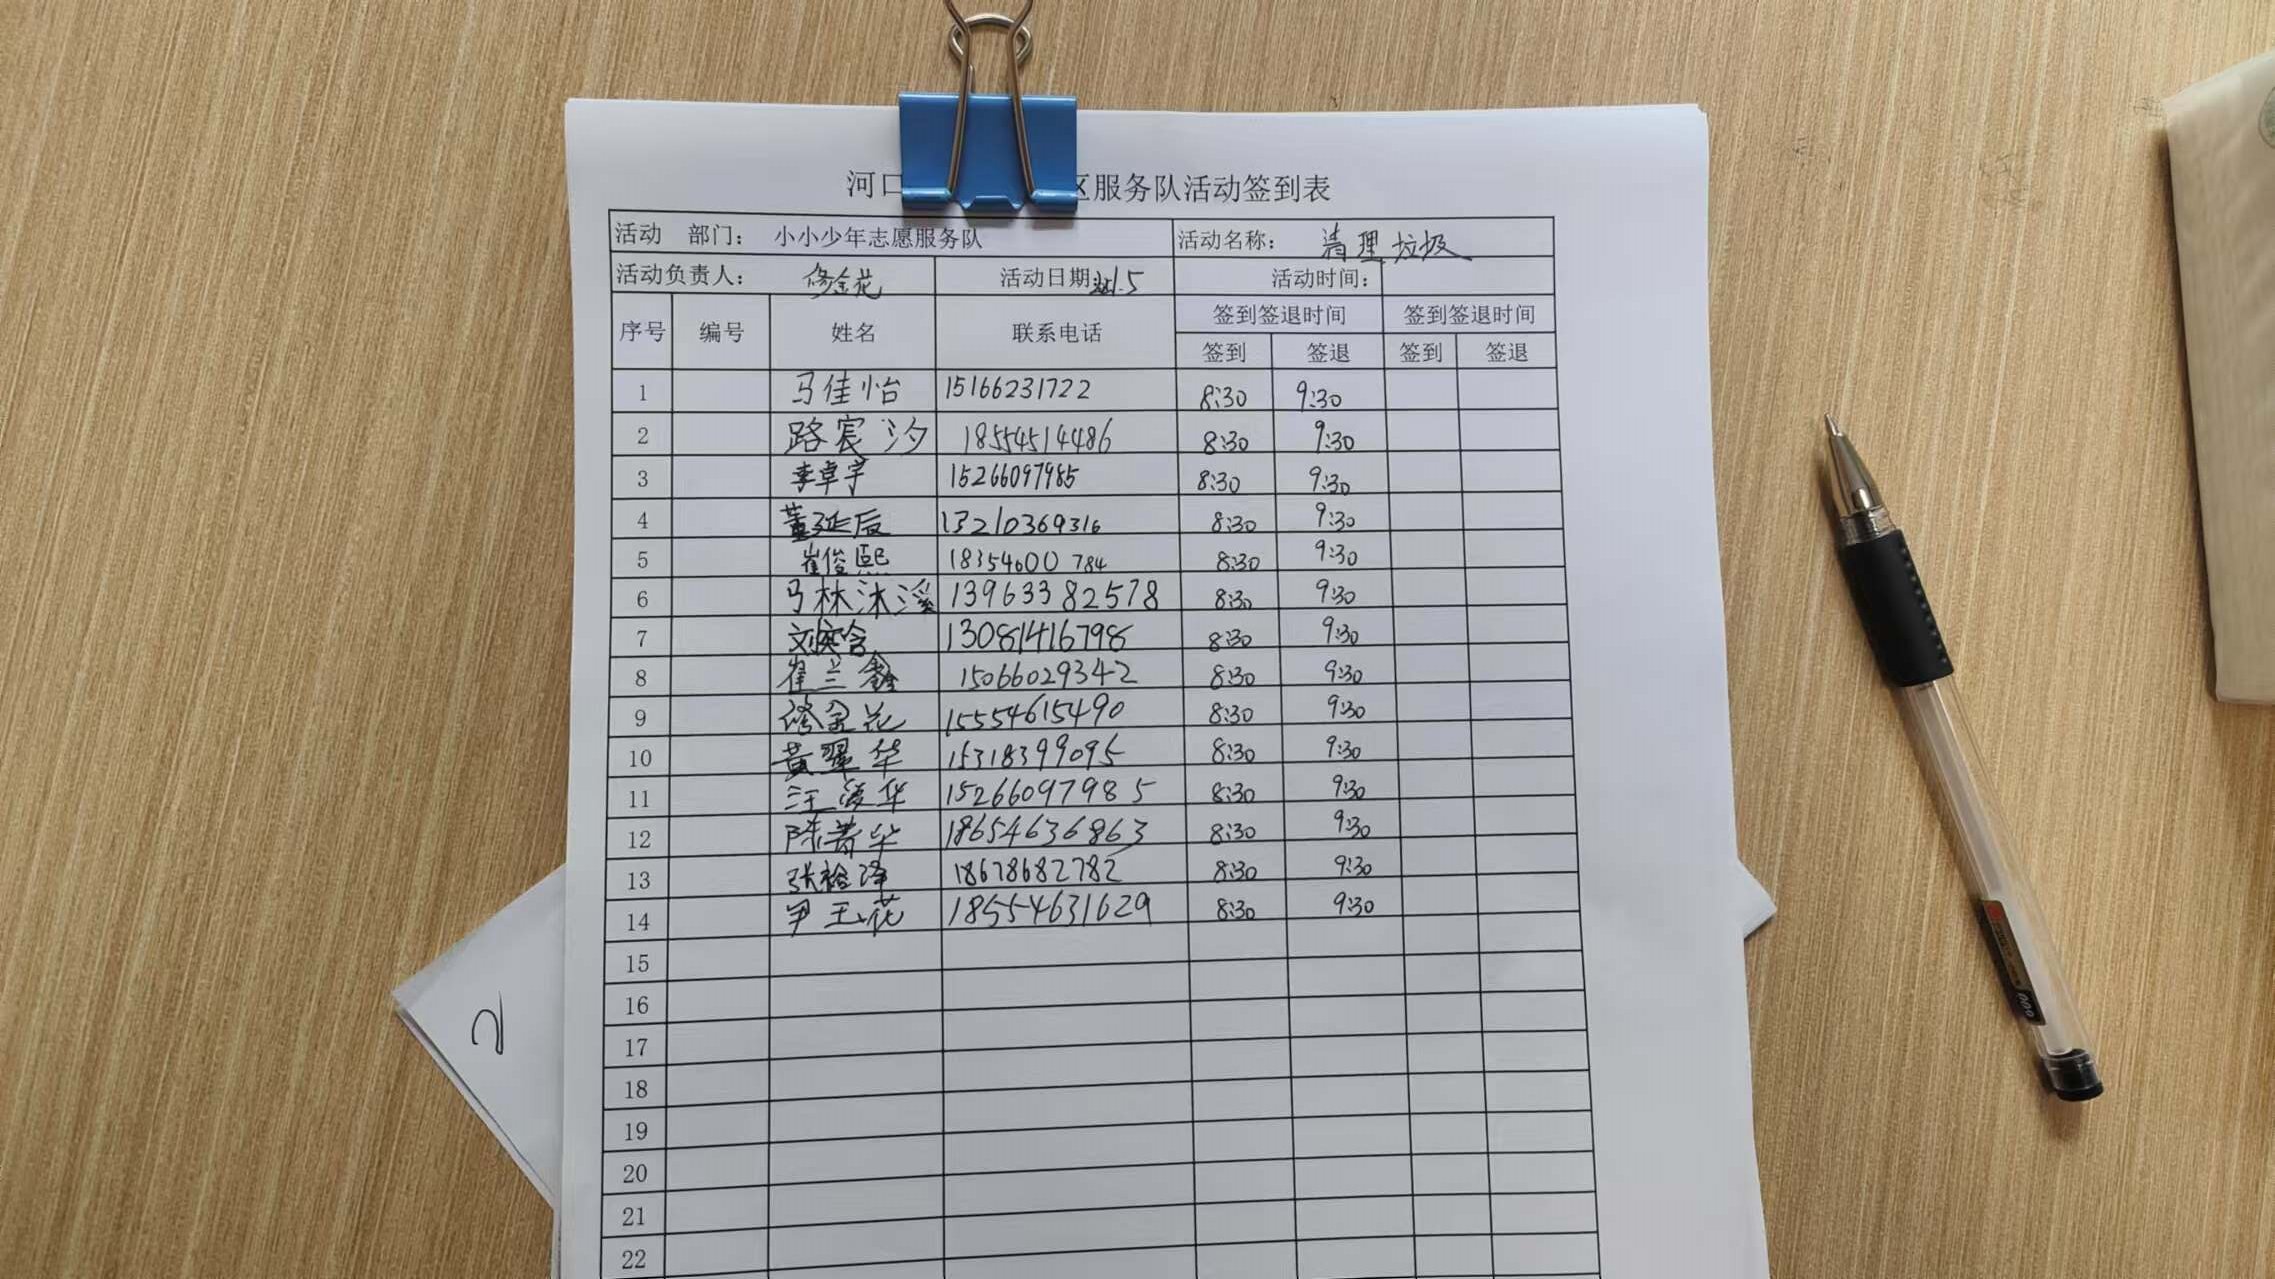 河口 区服务队活动签到表
活动 部门： 小小少年志愿服务队 活动名称： 清理垃圾
活动负责人： 修金花 活动日期 活动时间：
序号 编号 姓名 联系电话 签到签退时间 签到签退时间
签到 签退 签到 签退
1 马佳怡 15166231722 8:30 9:30
2 路宸汐 18554514486 8:30 9:30
3 李卓宇 15266097985 8:30 9:30
4 董延辰 13210369316 8:30 9:30
5 崔俊熙 18354600784 8:30 9:30
6 马林沐溪 13963382578 8:30 9:30
7 13081416798 8:30 9:30
8 崔兰鑫 15066029342 8:30 9:30
9 修金花 15554615490 8:30 9:30
10 黄翠华 15318399095 8:30 9:30
11 15266097985 8:30 9:30
12 18654636863 8:30 9:30
13 张裕泽 18678682782 8:30 9:30
14 尹玉花 18554631629 8:30 9:30
15
16
17
18
19
20
21
22
2